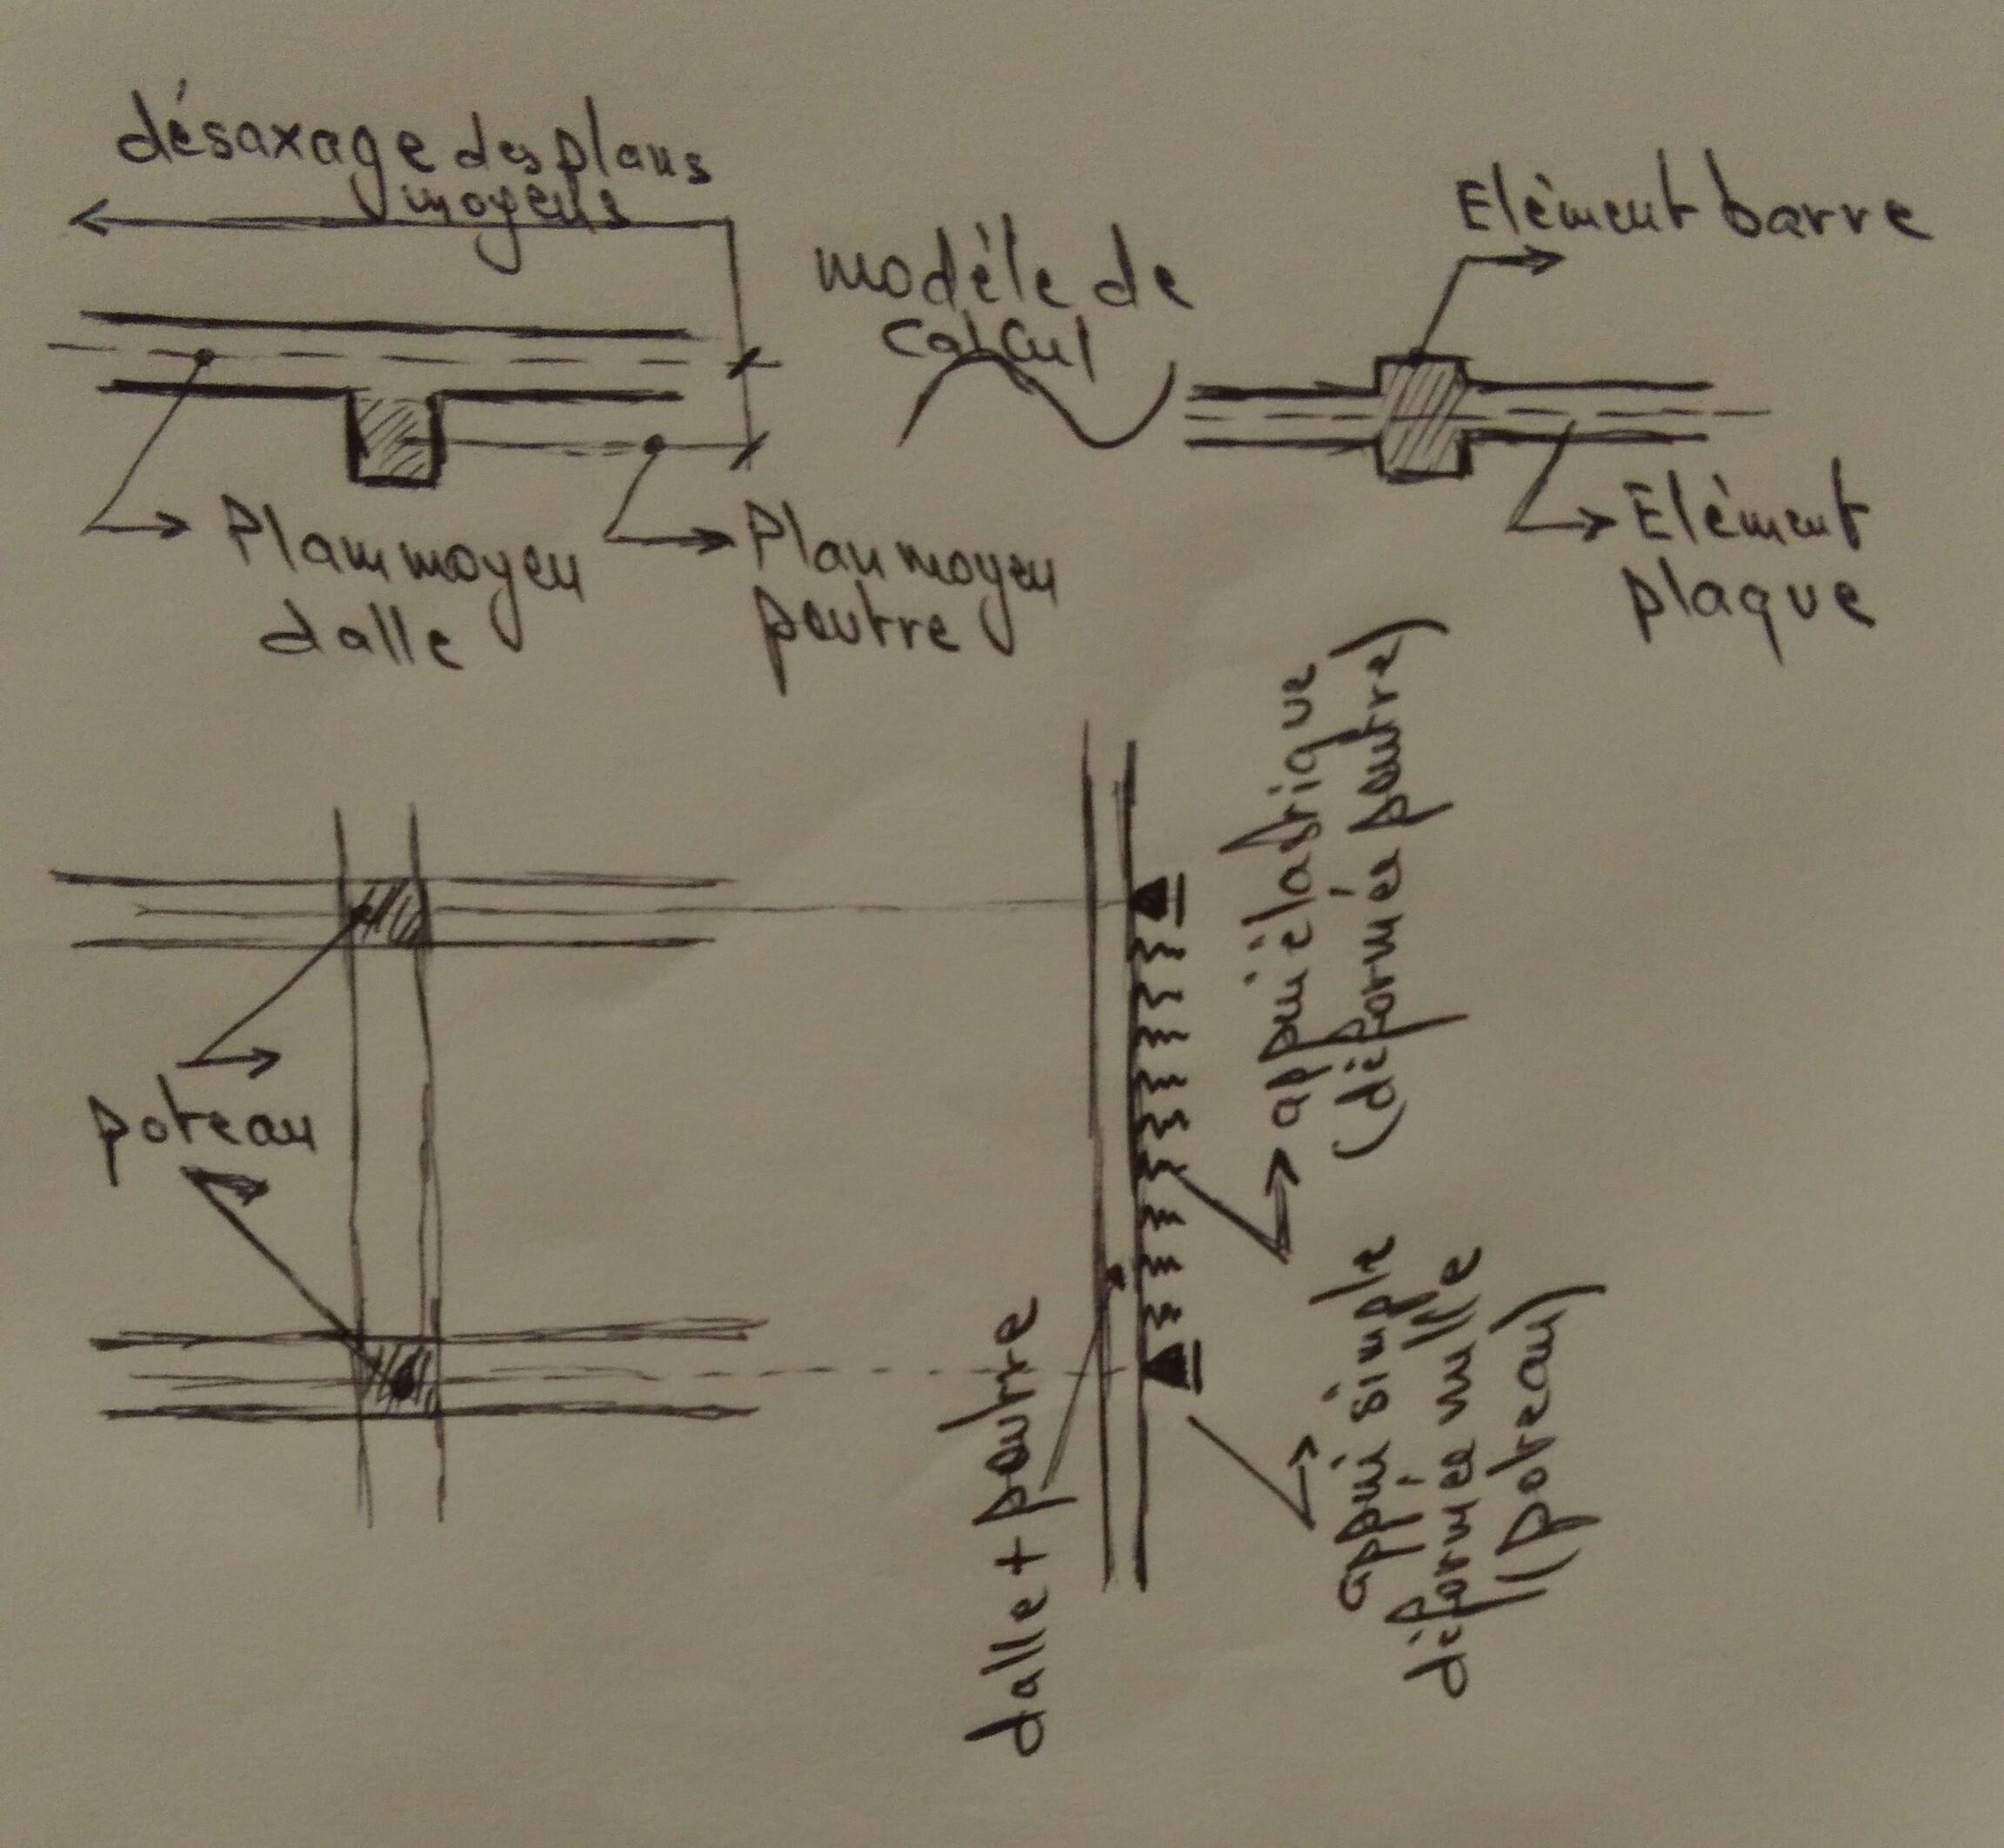 désaxage des plans
moyens
modèle de
calcul
Elèment barre
Plan moyen
dalle
Plan moyen
poutre
Elément
plaque
poteau
appui élastique
(déformée poutre)
dalle + poutre
appui simple
déformée nulle
(poteau)